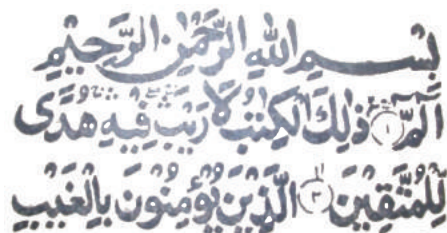 بِسْمِ اللهِ الرَّحْمٰنِ الرَّحِيْمِ
الٓمّٓ ۚ﴿۱﴾ ذٰلِكَ الْكِتٰبُ لَا رَيْبَ ۛ فِيْهِ ۛ هُدًى
لِّلْمُتَّقِيْنَ ۙ﴿۲﴾ الَّذِيْنَ يُؤْمِنُوْنَ بِالْغَيْبِ